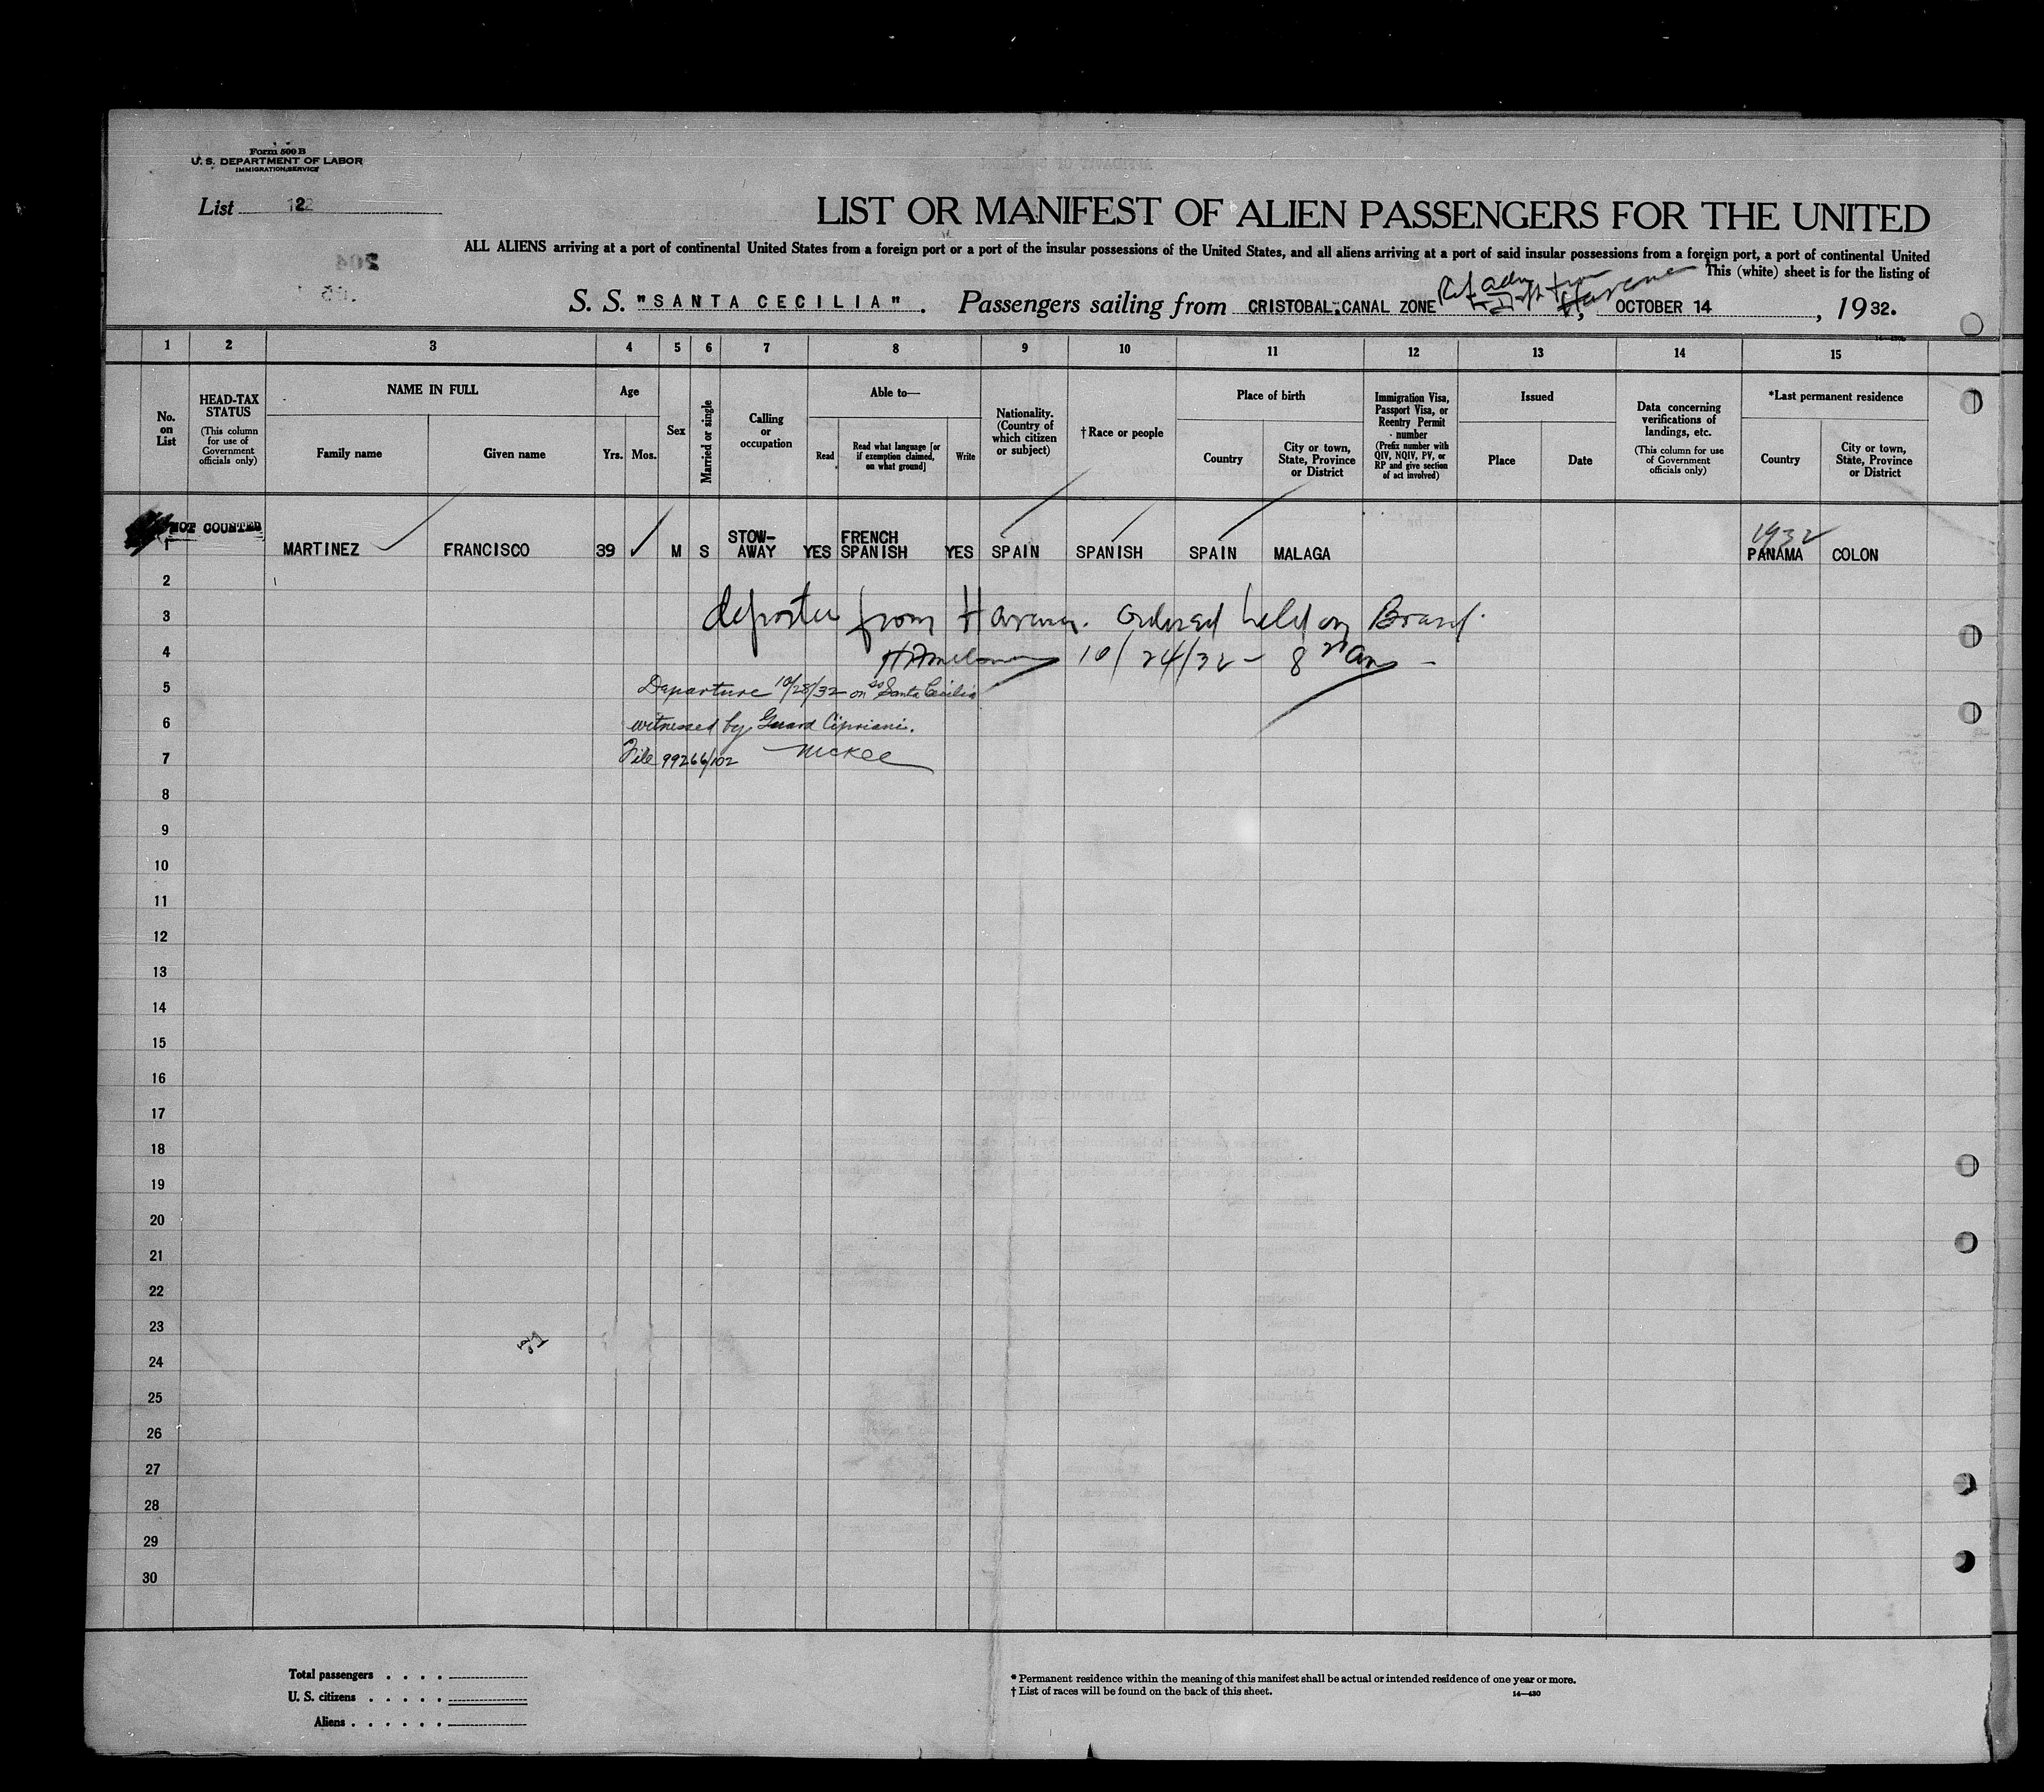 Form 500 B
U. S. DEPARTMENT OF LABOR
IMMIGRATION SERVICE
List 2
LIST OR MANIFEST OF ALIEN PASSENGERS FOR THE UNITED
ALL ALIENS arriving at a port of continental United States from a foreign port or a port of the insular possessions of the United States, and all aliens arriving at a port of said insular possessions from a foreign port, a port of continental United
This (white) sheet is for the listing of
S. S. "SANTA CECILIA". Passengers sailing from CRISTOBAL, CANAL ZONE Havana, OCTOBER 14, 1932.
1 2 3 4 5 6 7 8 9 10 11 12 13 14 15
No. on List
HEAD-TAX STATUS
(This column for use of Government officials only)
NAME IN FULL
Family name Given name
Age
Yrs. Mos.
Sex
Married or single
Calling or occupation
Able to—
Read
Read what language [or if exemption claimed, on what ground]
Write
Nationality. (Country of which citizen or subject)
† Race or people
Place of birth
Country
City or town, State, Province or District
Immigration Visa, Passport Visa, or Reentry Permit number
(Prefix number with QIV, NQIV, PV, or RP and give section of act involved)
Issued
Place Date
Data concerning verifications of landings, etc.
(This column for use of Government officials only)
*Last permanent residence
Country
City or town, State, Province or District
NOT COUNTED
1932
1 MARTINEZ FRANCISCO 39 M S STOW-AWAY YES FRENCH SPANISH YES SPAIN SPANISH SPAIN MALAGA PANAMA COLON
2
3 from Havana. Ordered held on Board.
4 10/24/32 - 8
5 Departure 10/28/32 on SS Santa Cecilia
6 witnessed by Guard Cipriani.
7 File 99266/102 McKee
8
9
10
11
12
13
14
15
16
17
18
19
20
21
22
23
24
25
26
27
28
29
30
Total passengers . . . .
U. S. citizens . . . . .
Aliens . . . . . .
* Permanent residence within the meaning of this manifest shall be actual or intended residence of one year or more.
† List of races will be found on the back of this sheet.
14—430